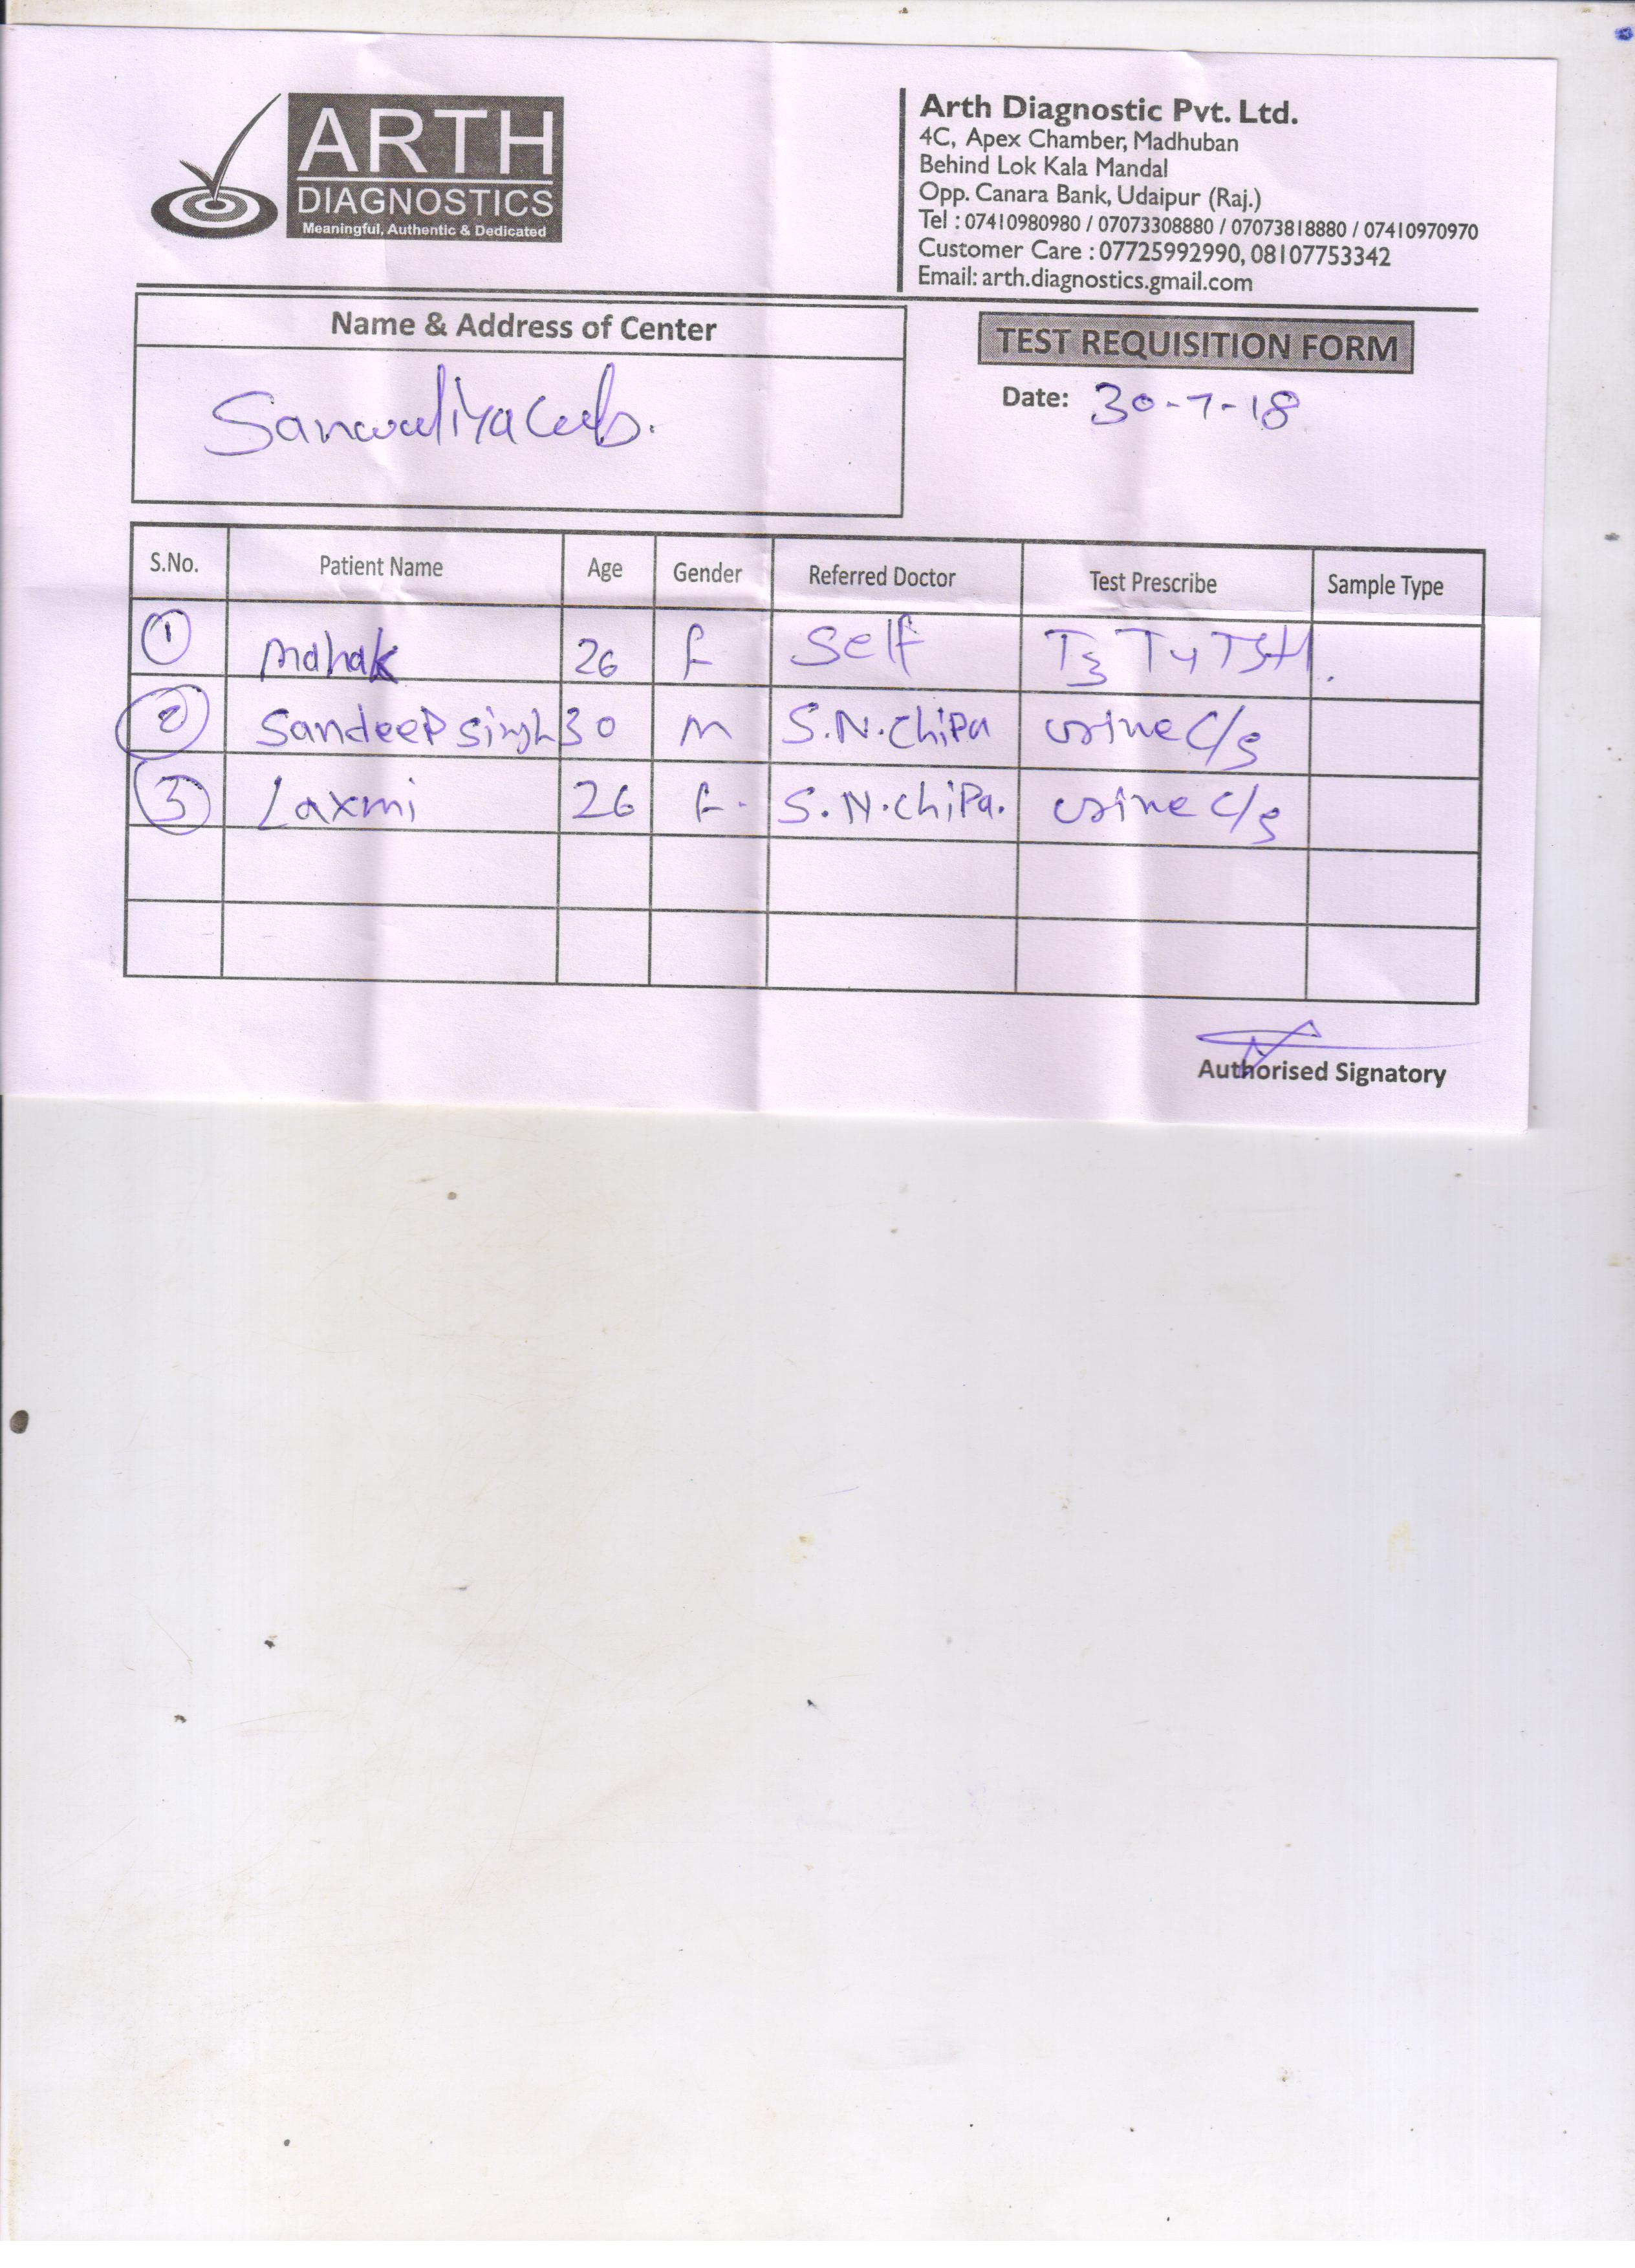 ARTH
DIAGNOSTICS
Meaningful, Authentic & Dedicated
Arth Diagnostic Pvt. Ltd.
4C, Apex Chamber, Madhuban
Behind Lok Kala Mandal
Opp. Canara Bank, Udaipur (Raj.)
Tel : 07410980980 / 07073308880 / 07073818880 / 07410970970
Customer Care : 07725992990, 08107753342
Email: arth.diagnostics.gmail.com
Name & Address of Center
TEST REQUISITION FORM
Date: 30-7-18
S.No. Patient Name Age Gender Referred Doctor Test Prescribe Sample Type
1 Mahak 26 F Self T3 T4 TSH
2 Sandeep Singh 30 M S.N. Chipa urine C/s
3 Laxmi 26 F. S.N. Chipa. urine C/s
Authorised Signatory